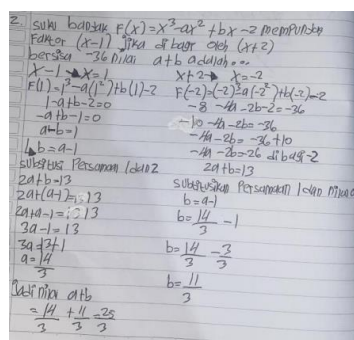 2. Suku banyak F(x)=x³-ax²+bx-2 mempunyai
Faktor (x-1) jika dibagi oleh (x+2)
bersisa -36 nilai a+b adalah...
x-1 → x=1
F(1)=1³-a(1²)+b(1)-2
1-a+b-2=0
-a+b-1=0
a-b=1
↳ b=a-1
x+2 → x=-2
F(-2)=(-2)³-a(-2²)+b(-2)-2
-8-4a-2b-2=-36
-10-4a-2b=-36
-4a-2b=-36+10
-4a-2b=26 dibagi-2
2a+b=13
Subtitusi Persamaan 1 dan 2
2a+b=13
2a+(a-1)=13
2a+a-1=13
3a-1=13
3a=13+1
a=14/3
Subtitusikan Persamaan 1 dan nilai a
b=a-1
b=14/3-1
b=14/3-3/3
b=11/3
Jadi nilai a+b
=14/3+11/3=25/3